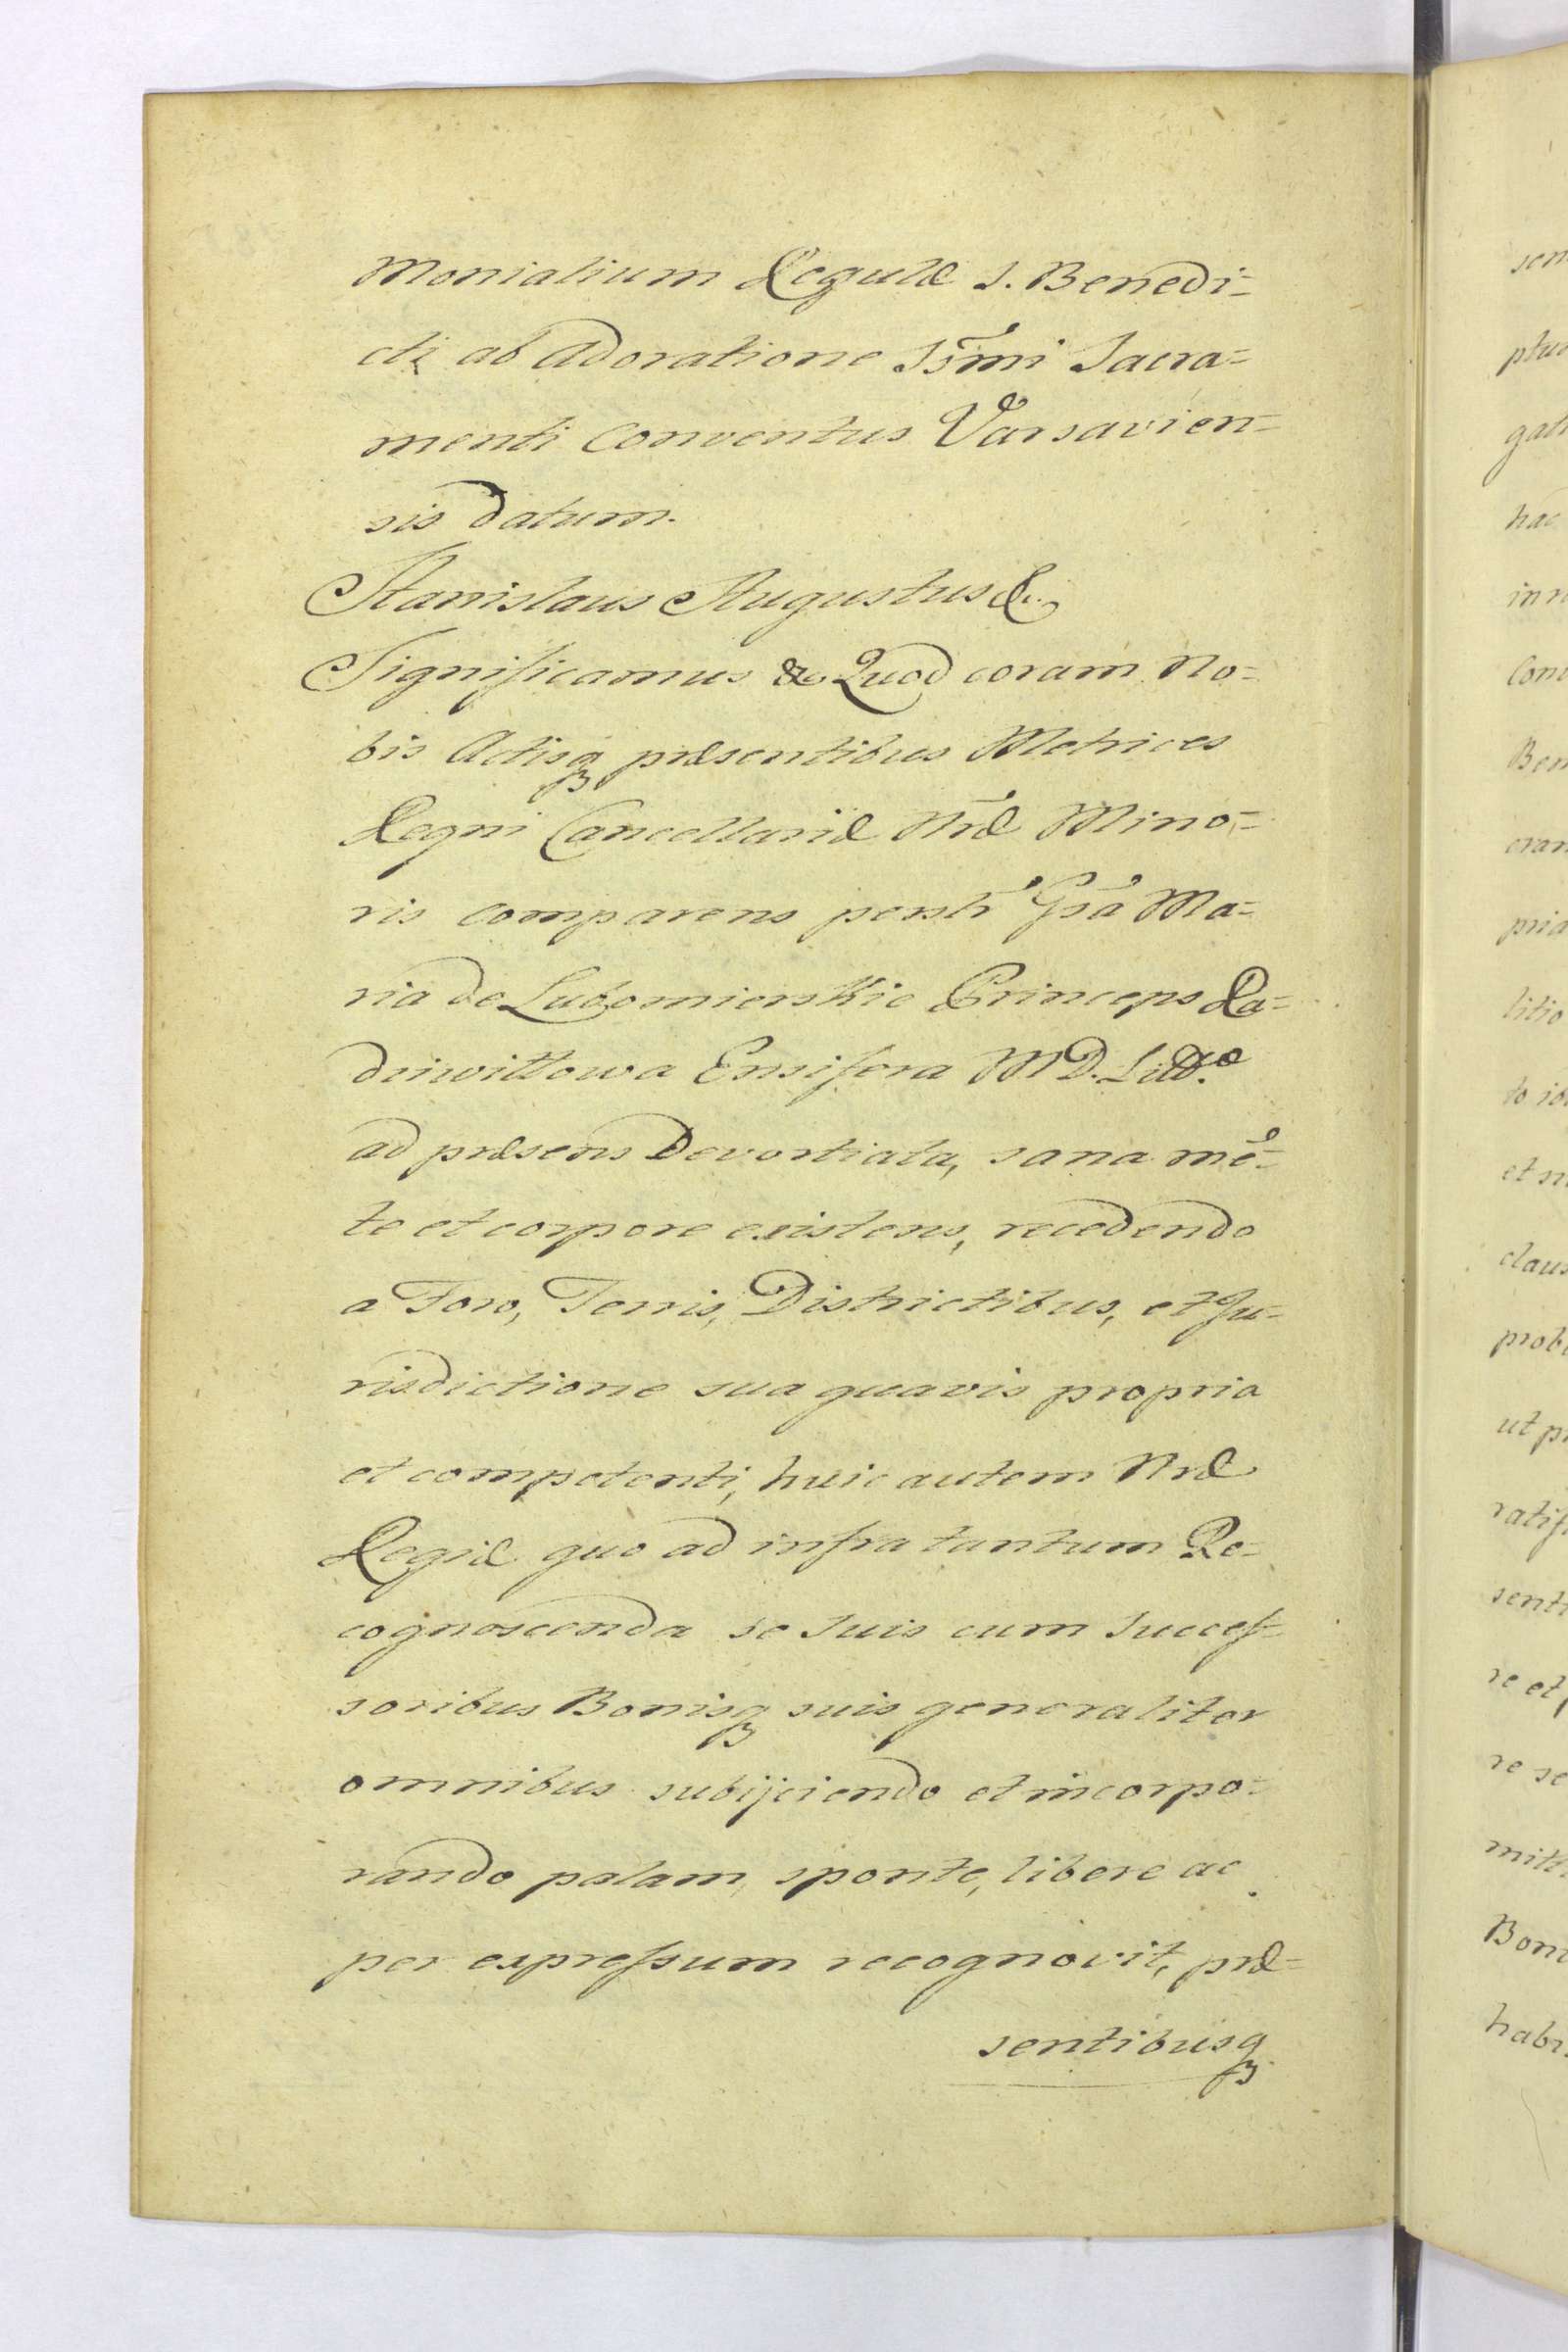 Monialium Regulæ S. Benedi=
cti ab Adoratione SSm̄i Sacra=
menti Conventus Varsavien=
sis datum.
Stanislaus Augustus &.
Significamus &. Quod coram No=
bis Actisqꝫ præsentibus Metrices
Regni Cancellariæ Nr̄æ Mino=
ris comparens persltr̄ Gsā Ma=
ria de Lubomierskie Princeps Ra=
dziwillowa Ensifera M D. Litt.
ad præsens Devortiata, sana mē=
te et corpore existens, recedendo
a Foro, Terris, Districtibus, et Ju=
risdictione sua quavis propria
et competenti, huic autem Nræ
Regiæ quo ad infra tantum Re=
cognoscenda se Suis cum Succeſ=
soribus Bonisqꝫ suis generaliter
omnibus subijciendo et incorpo=
rando palam, sponte, libere ac
per expreſsum recognovit, præ=
sentibusqꝫ
sen
ptu
gat
hac
in n
Con
Ben
cran
pria
litio
to ib
et n
claus
prob
ut p
ratif
sent
re et
re se
mitt
Bon
hab